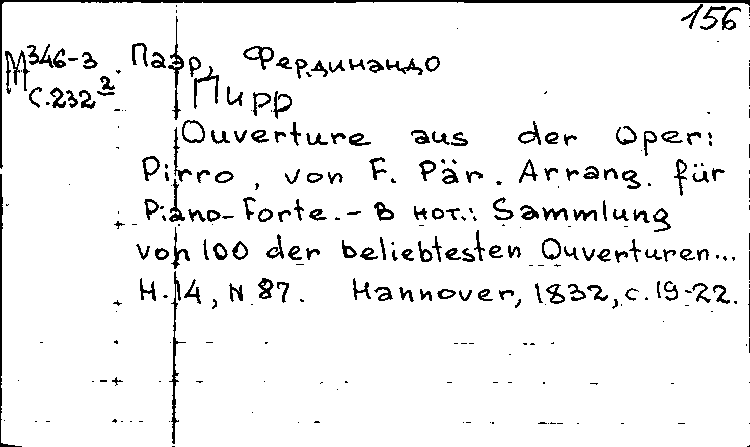 156
М 346-3 Паэр, Фердинандо
С.232² Пирр
Ouverture aus der Oper:
Pirro, von F. Pär. Arrang. für
Piano-Forte. - В нот.: Sammlung
von 100 der beliebtesten Ouverturen...
H.14, N 87. Hannover, 1832, с.19-22.